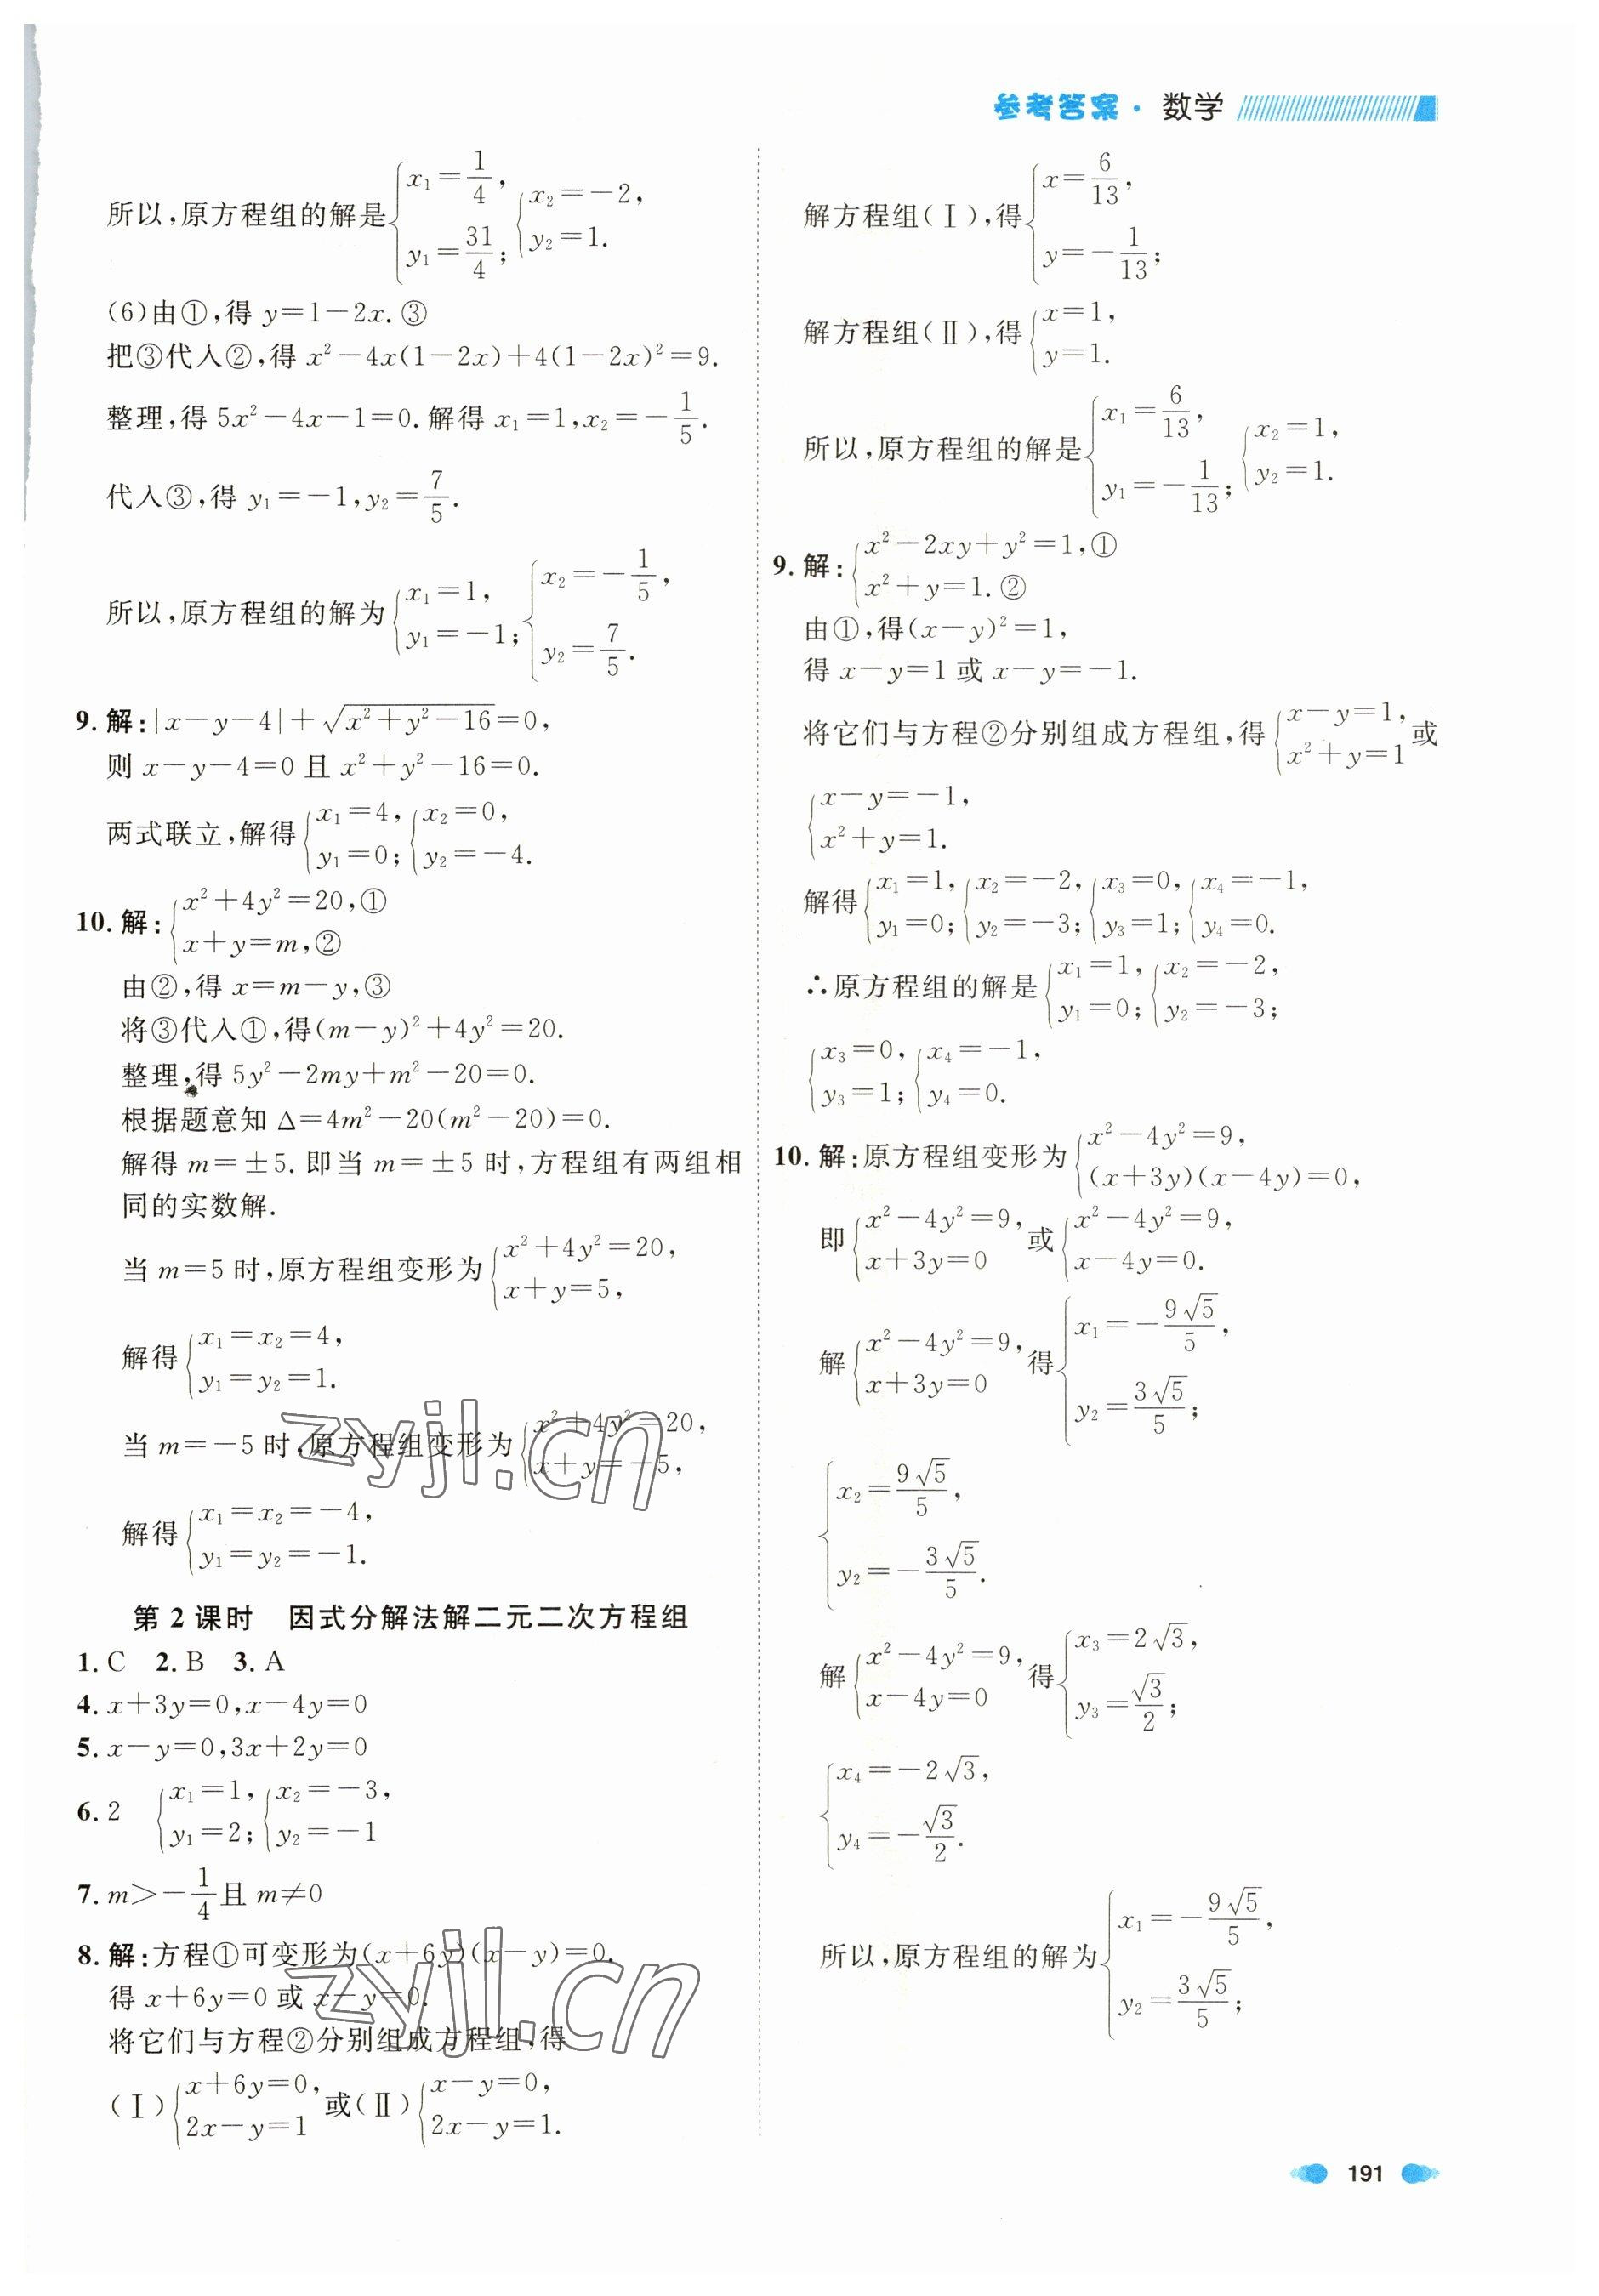 参考答案·数学
所以,原方程组的解是{x₁=1/4, y₁=31/4; {x₂=-2, y₂=1.
(6)由①,得 y=1-2x.③
把③代入②,得 x²-4x(1-2x)+4(1-2x)²=9.
整理,得 5x²-4x-1=0.解得 x₁=1,x₂=-1/5.
代入③,得 y₁=-1,y₂=7/5.
所以,原方程组的解为{x₁=1, y₁=-1; {x₂=-1/5, y₂=7/5.
9.解:|x-y-4|+√(x²+y²-16)=0,
则 x-y-4=0 且 x²+y²-16=0.
两式联立,解得{x₁=4, y₁=0; {x₂=0, y₂=-4.
10.解:{x²+4y²=20,① x+y=m,②
由②,得 x=m-y,③
将③代入①,得(m-y)²+4y²=20.
整理,得 5y²-2my+m²-20=0.
根据题意知 Δ=4m²-20(m²-20)=0.
解得 m=±5.即当 m=±5 时,方程组有两组相
同的实数解.
当 m=5 时,原方程组变形为{x²+4y²=20, x+y=5,
解得{x₁=x₂=4, y₁=y₂=1.
当 m=-5 时,原方程组变形为{x²+4y²=20, x+y=-5,
解得{x₁=x₂=-4, y₁=y₂=-1.
第 2 课时 因式分解法解二元二次方程组
1.C 2.B 3.A
4.x+3y=0,x-4y=0
5.x-y=0,3x+2y=0
6.2 {x₁=1, y₁=2; {x₂=-3, y₂=-1
7.m>-1/4且 m≠0
8.解:方程①可变形为(x+6y)(x-y)=0.
得 x+6y=0 或 x-y=0.
将它们与方程②分别组成方程组,得
(Ⅰ){x+6y=0, 2x-y=1 或(Ⅱ){x-y=0, 2x-y=1.
解方程组(Ⅰ),得{x=6/13, y=-1/13;
解方程组(Ⅱ),得{x=1, y=1.
所以,原方程组的解是{x₁=6/13, y₁=-1/13; {x₂=1, y₂=1.
9.解:{x²-2xy+y²=1,① x²+y=1.②
由①,得(x-y)²=1,
得 x-y=1 或 x-y=-1.
将它们与方程②分别组成方程组,得{x-y=1, x²+y=1 或
{x-y=-1, x²+y=1.
解得{x₁=1, y₁=0; {x₂=-2, y₂=-3; {x₃=0, y₃=1; {x₄=-1, y₄=0.
∴原方程组的解是{x₁=1, y₁=0; {x₂=-2, y₂=-3;
{x₃=0, y₃=1; {x₄=-1, y₄=0.
10.解:原方程组变形为{x²-4y²=9, (x+3y)(x-4y)=0,
即{x²-4y²=9, x+3y=0 或{x²-4y²=9, x-4y=0.
解{x²-4y²=9, x+3y=0 得{x₁=-9√5/5, y₂=3√5/5;
{x₂=9√5/5, y₂=-3√5/5.
解{x²-4y²=9, x-4y=0 得{x₃=2√3, y₃=√3/2;
{x₄=-2√3, y₄=-√3/2.
所以,原方程组的解为{x₁=-9√5/5, y₂=3√5/5;
191
zyjl.cn
zyjl.cn